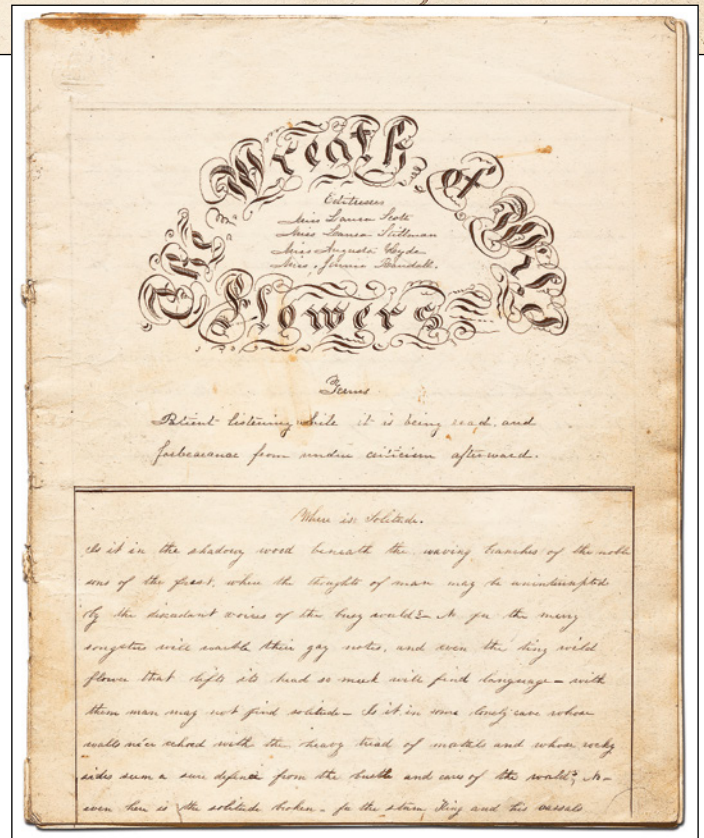 The Wreath of Wild
Flowers
Editresses
Miss Laura Scott
Miss Laura Stillman
Miss Augusta Clyde
Miss Jennie Randall.
Terms
Patient listening while it is being read, and
forbearance from undue criticism afterward.
Where is Solitude.
Is it in the shadowy wood beneath the waving branches of the noble
sons of the forest, where the thoughts of man may be uninterrupted
by the discordant voices of the busy world? – No for the merry
songsters will warble their gay notes, and even the tiny wild
flower that lifts its head so meek will find language – with
them man may not find solitude – Is it in some lonely cave whose
walls ne'er echoed with the heavy tread of mortals and whose rocky
sides seem a sure defence from the bustle and cares of the world? No –
even here is the solitude broken – for the storm King and his vassals